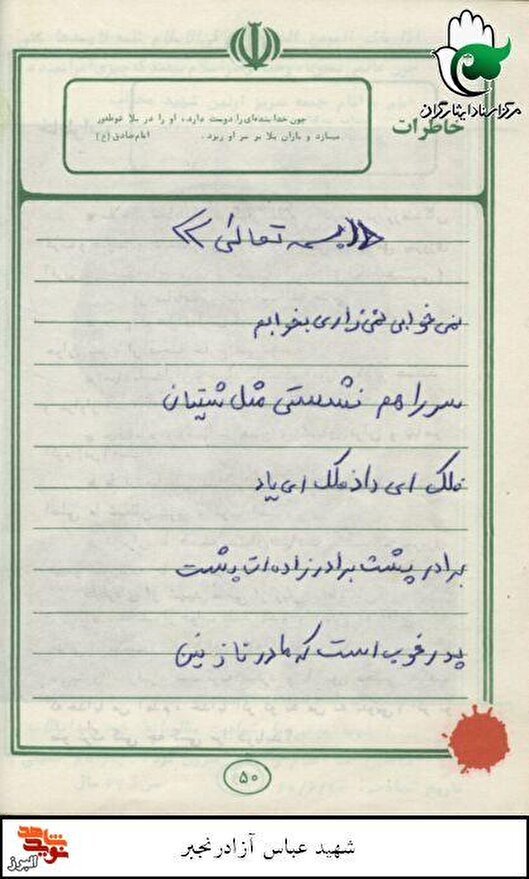 مرکز اسناد ایثارگران
خاطرات
چون خدا بنده‌ای را دوست دارد، او را در بلا غوطه‌ور
میسازد و باران بلا بر سر او ریزد.
امام صادق (ع)
«بسمه تعالی»
نمی خوابی نمی زاری بخوابم
سر راهم نشستی مثل شیتان
فلک ای داد فلک ای یاد
برادر پشت برادر زاده ات پشت
پدر خوب است که مادر نازنین
۵۰
شاهد
نوید
البرز
شهید عباس آزادرنجبر